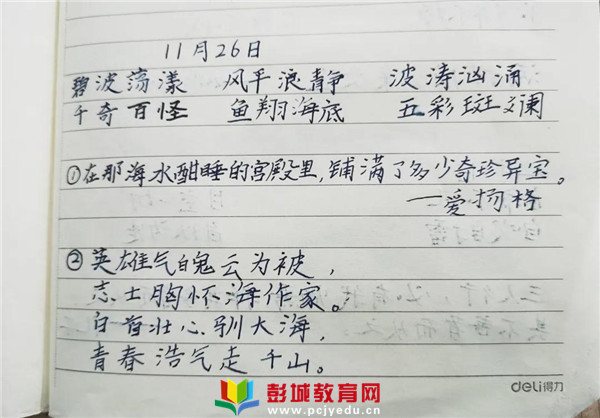 11月26日
碧波荡漾 风平浪静 波涛汹涌
千奇百怪 鱼翔海底 五彩斑斓
①在那海水酣睡的宫殿里,铺满了多少奇珍异宝。
一爱扬格
②英雄气魄云为被,
志士胸怀海作家。
白首壮心驯大海,
青春浩气走千山。
deli得力
彭城教育网
www.pcjyedu.cn